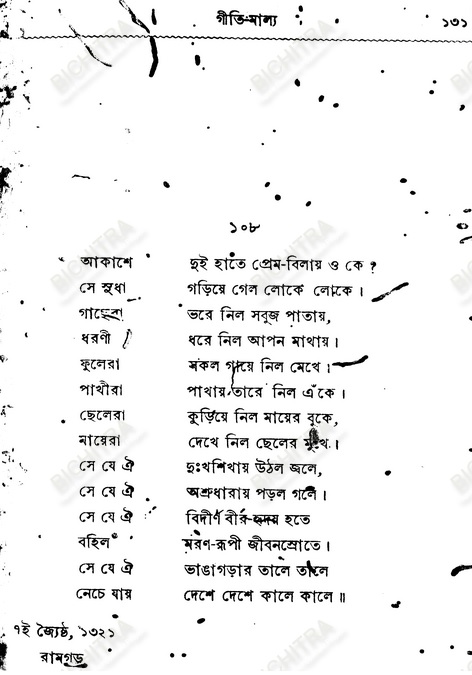 গীতি-মাল্য ১৩১
১০৮
আকাশে দুই হাতে প্রেম-বিলায় ও কে ?
সে সুধা গড়িয়ে গেল লোকে লোকে ।
গাছেরা ভরে নিল সবুজ পাতায়,
ধরণী ধরে নিল আপন মাথায় ।
ফুলেরা সকল গায়ে নিল মেখে ।
পাখীরা পাখায় তারে নিল এঁকে ।
ছেলেরা কুড়িয়ে নিল মায়ের বুকে,
মায়েরা দেখে নিল ছেলের মুখে ।
সে যে ঐ দুঃখশিখায় উঠল জলে,
সে যে ঐ অশ্রুধারায় পড়ল গলে ।
সে যে ঐ বিদীর্ণ বীর-হৃদয় হতে
বহিল মরণ-রূপী জীবনস্রোতে ।
সে যে ঐ ভাঙাগড়ার তালে তালে
নেচে যায় দেশে দেশে কালে কালে ॥
৭ই জ্যৈষ্ঠ, ১৩২১
রামগড়
BICHITRA